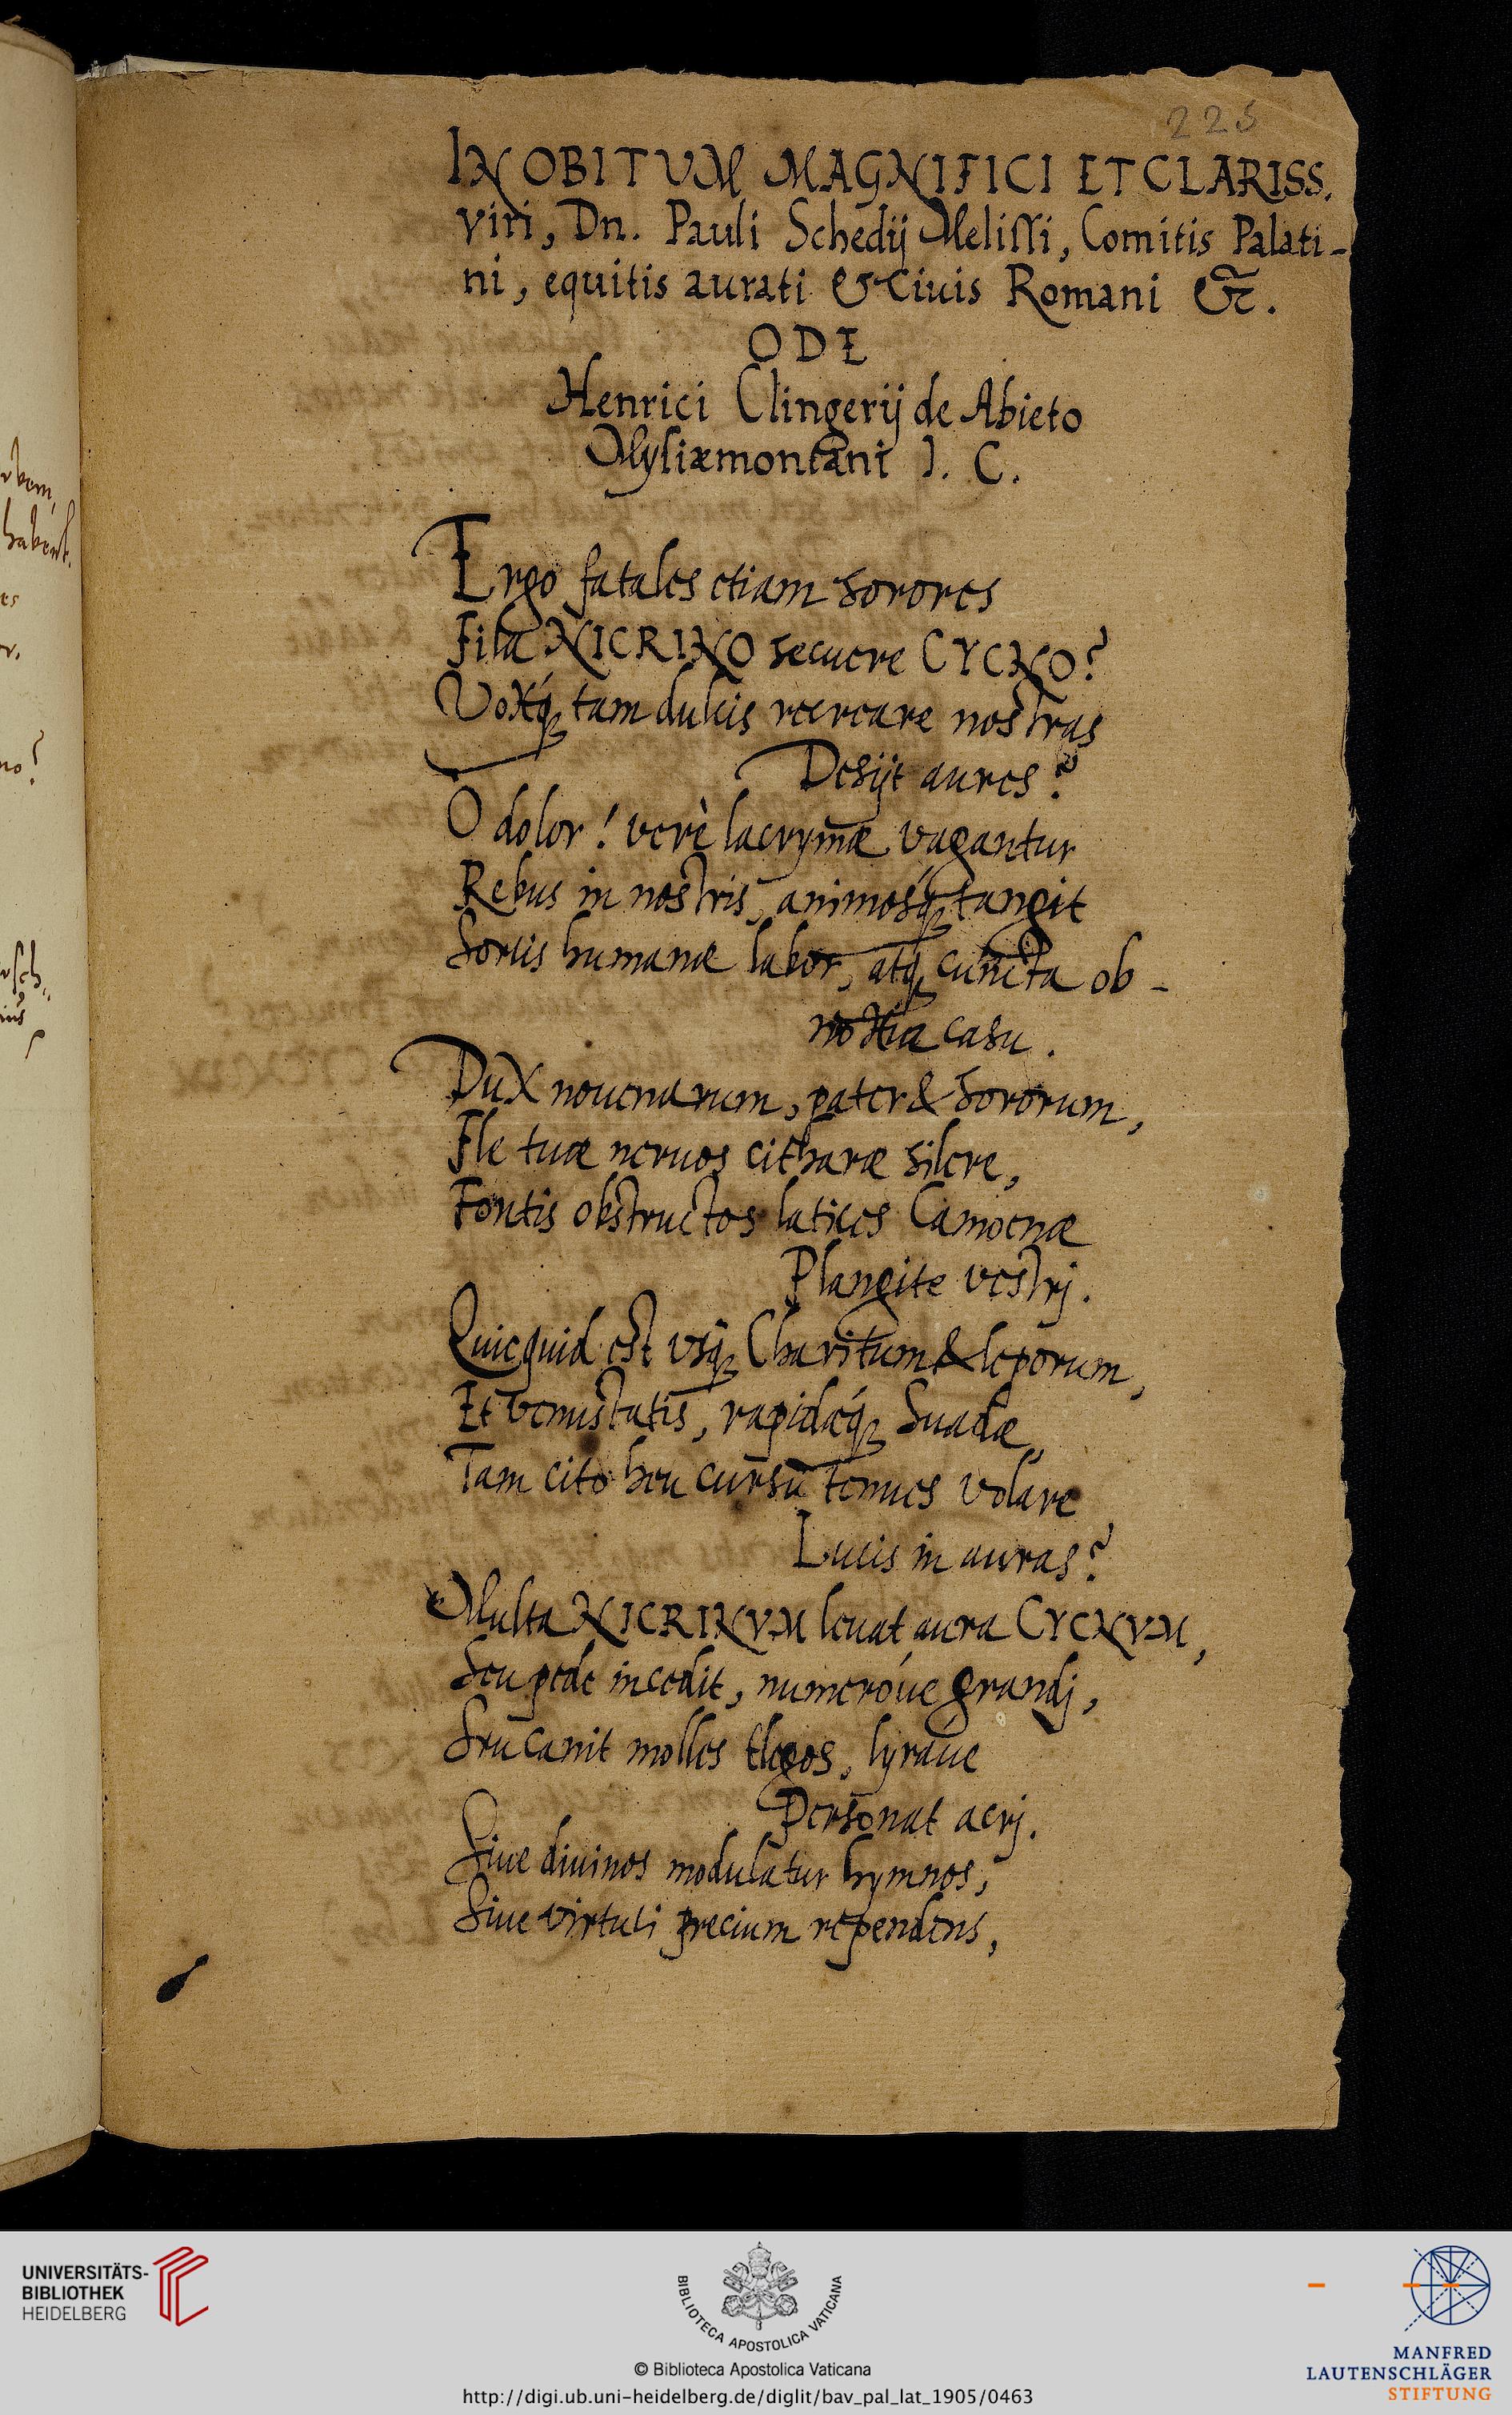 225
IN OBITVM MAGNIFICI ET CLARISS.
viri, Dn. Pauli Schedij Melissi, Comitis Palati-
ni, equitis aurati & Ciuis Romani &c.
ODE
Henrici Clingerij de Abieto
Mysiæmontani J. C.
Ergo fatales etiam sorores
Fila NICRINO secuere CYCNO?
Voxq́; tam dulcis recreare nostras
Desijt aures?
O dolor! verè lacrymæ vagantur
Rebus in nostris, animosq́; tangit
Sortis humanæ labor, atq; cuncta ob-
noxia casu.
Dux nouenarum, pater & sororum,
Fle tuæ neruos citharæ silere,
Fontis obstructos latices Camoenæ
Plangite vestrj.
Quicquid est vsq; Charitum & leporum,
Et venustatis, rapidæq́; Suadæ,
Tam cito heu cursu tenues volare
Lucis in auras?
Multa NICRINVM leuat aura CYCNVM,
Seu pede incedit, numeróue grandj,
Seu canit molles elegos, lyráue
Personat acrj.
Siue diuinos modulatur hymnos,
Siue virtuti precium rependens,
rbem,
habent.
no?
UNIVERSITÄTS-
BIBLIOTHEK
HEIDELBERG
BIBLIOTECA APOSTOLICA VATICANA
© Biblioteca Apostolica Vaticana
http://digi.ub.uni-heidelberg.de/diglit/bav_pal_lat_1905/0463
MANFRED
LAUTENSCHLÄGER
STIFTUNG